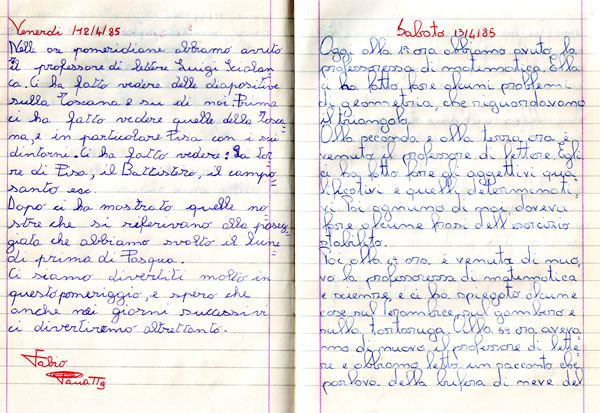 Venerdì 12/4/85
Nelle ore pomeridiane abbiamo avuto
il professore di lettere Luigi Scialan=
ca. Ci ha fatto vedere delle diapositive
sulla Toscana e su di noi. Prima
ci ha fatto vedere quelle della Tosca=
na, e in particolare Pisa con i suoi
dintorni. Ci ha fatto vedere: la tor=
re di Pisa, il Battistero, il campo
santo ecc.
Dopo ci ha mostrato quelle no=
stre che si riferivano alla passeg=
giata che abbiamo svolto il lune=
dì prima di Pasqua.
Ci siamo divertiti molto in
questo pomeriggio, e spero che
anche nei giorni successivi
ci divertiremo altrettanto.
Fabio
Sabato 13/4/85
Oggi alla 1ª ora abbiamo avuto la
professoressa di matematica. Ella
ci ha fatto fare alcuni problemi
di geometria, che riguardavano
il triangolo.
Alla seconda e alla terza ora è
venuto il professore di lettere. Egli
ci ha fatto fare gli aggettivi qua=
lificativi e quelli determinati=
vi. Poi ognuno di noi, doveva
fare alcune frasi dell'esercizio
stabilito.
Poi alla 4ª ora è venuta di nuo=
vo la professoressa di matematica
e scienze, e ci ha spiegato alcune
cose sul lombrico, sul gambero e
sulla tartaruga. Alla 5ª ora aveva=
mo di nuovo il professore di lette=
re e abbiamo letto un racconto che
parlava della bufera di neve del